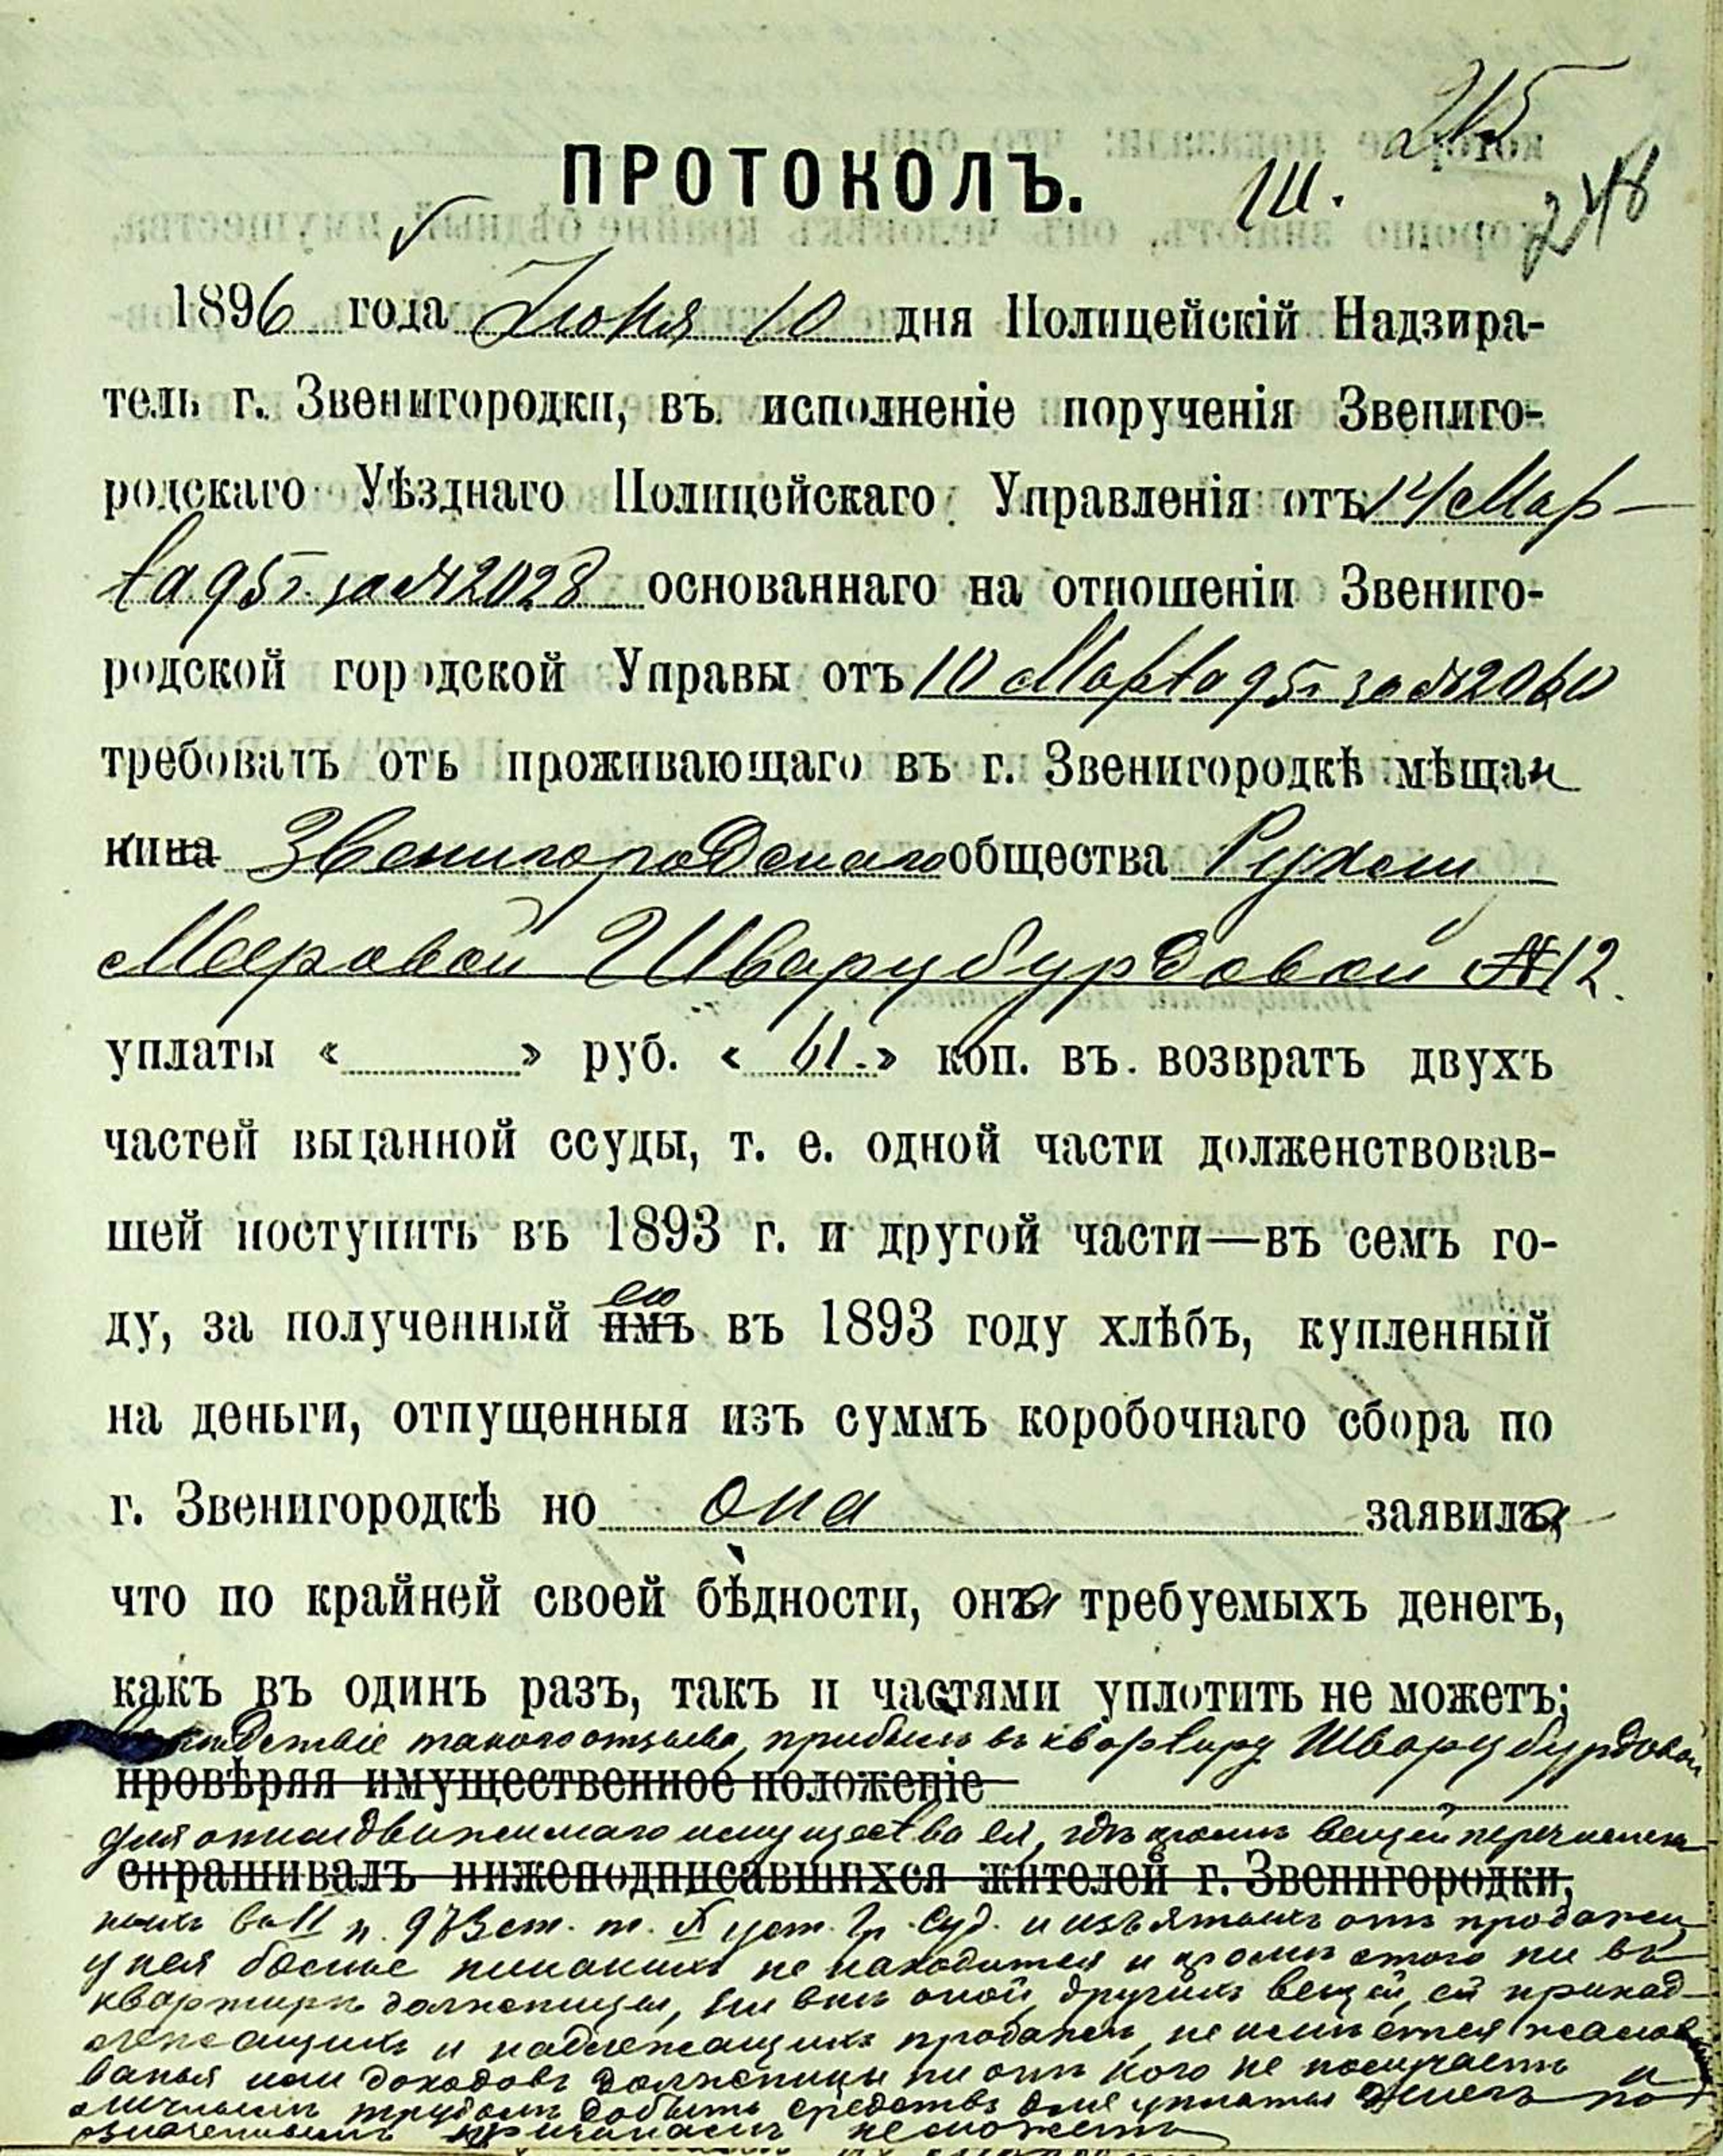 215
ПРОТОКОЛЪ. Ш. 248
1896 года Июня 10 дня Полицейскій Надзира-
тель г. Звенигородки, въ исполненіе порученія Звениго-
родскаго Уѣзднаго Полицейскаго Управленія отъ 14 Мар-
та 95 г. за № 2028 основаннаго на отношеніи Звениго-
родской городской Управы отъ 10 Марта 95 г. за № 2060
требовалъ отъ проживающаго въ г. Звенигородкѣ мѣщан
кина Звенигородскаго общества Рухли
Мееровой Шварцбурдовой № 12.
уплаты « » руб. « 61. » коп. въ возвратъ двухъ
частей выданной ссуды, т. е. одной части долженствовав-
шей поступить въ 1893 г. и другой части—въ семъ го-
ею
ду, за полученный имъ въ 1893 году хлѣбъ, купленный
на деньги, отпущенныя изъ суммъ коробочнаго сбора по
г. Звенигородкѣ но она заявила,
что по крайней своей бѣдности, она требуемыхъ денегъ,
какъ въ одинъ разъ, такъ и частями уплотить не можетъ;
Вслѣдствіе такого отзыва, прибылъ въ квартиру Шварцбурдовой
провѣряя имущественное положеніе
для описи движимаго имущества ея, гдѣ кромѣ вещей перечислен
спрашивалъ нижеподписавшихся жителей г. Звенигородки,
ныхъ во II п. 973 ст. т. X уст. Гр. Суд. и изъятыхъ отъ продажи,
у нея болѣе никакихъ не находится и кромѣ этого ни въ
квартирѣ должницы, ни внѣ оной, другихъ вещей, ей принад-
лежащихъ и надлежащихъ продажѣ, не имѣется, жалов
ванья или доходовъ должница ни отъ кого не получаетъ и
личнымъ трудомъ добыть средствъ для уплаты денегъ по
означеннымъ причинамъ не можетъ